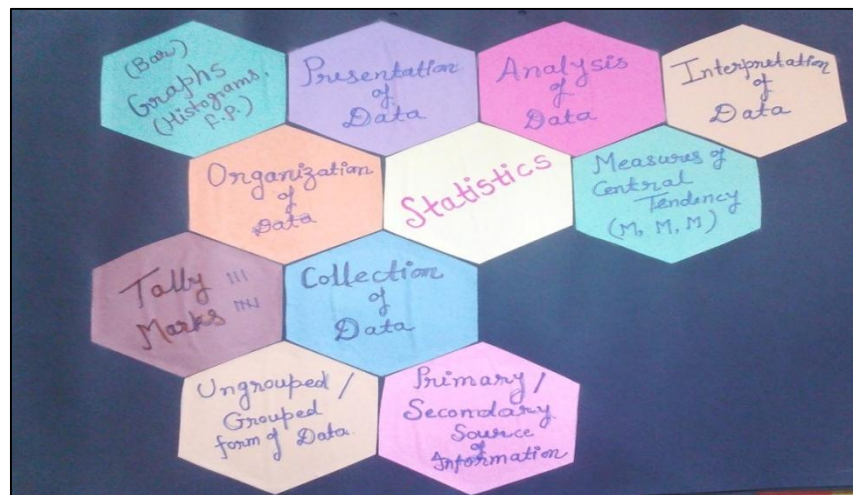 (Bar)
Graphs
(Histograms,
F.P.)
Presentation
of
Data
Analysis
of
Data
Interpretation
of
Data
Organization
of
Data
Statistics
Measures of
Central
Tendency
(M, M, M)
Tally |||
Marks
Collection
of
Data
Ungrouped /
Grouped
form of Data
Primary /
Secondary
Source
of
Information